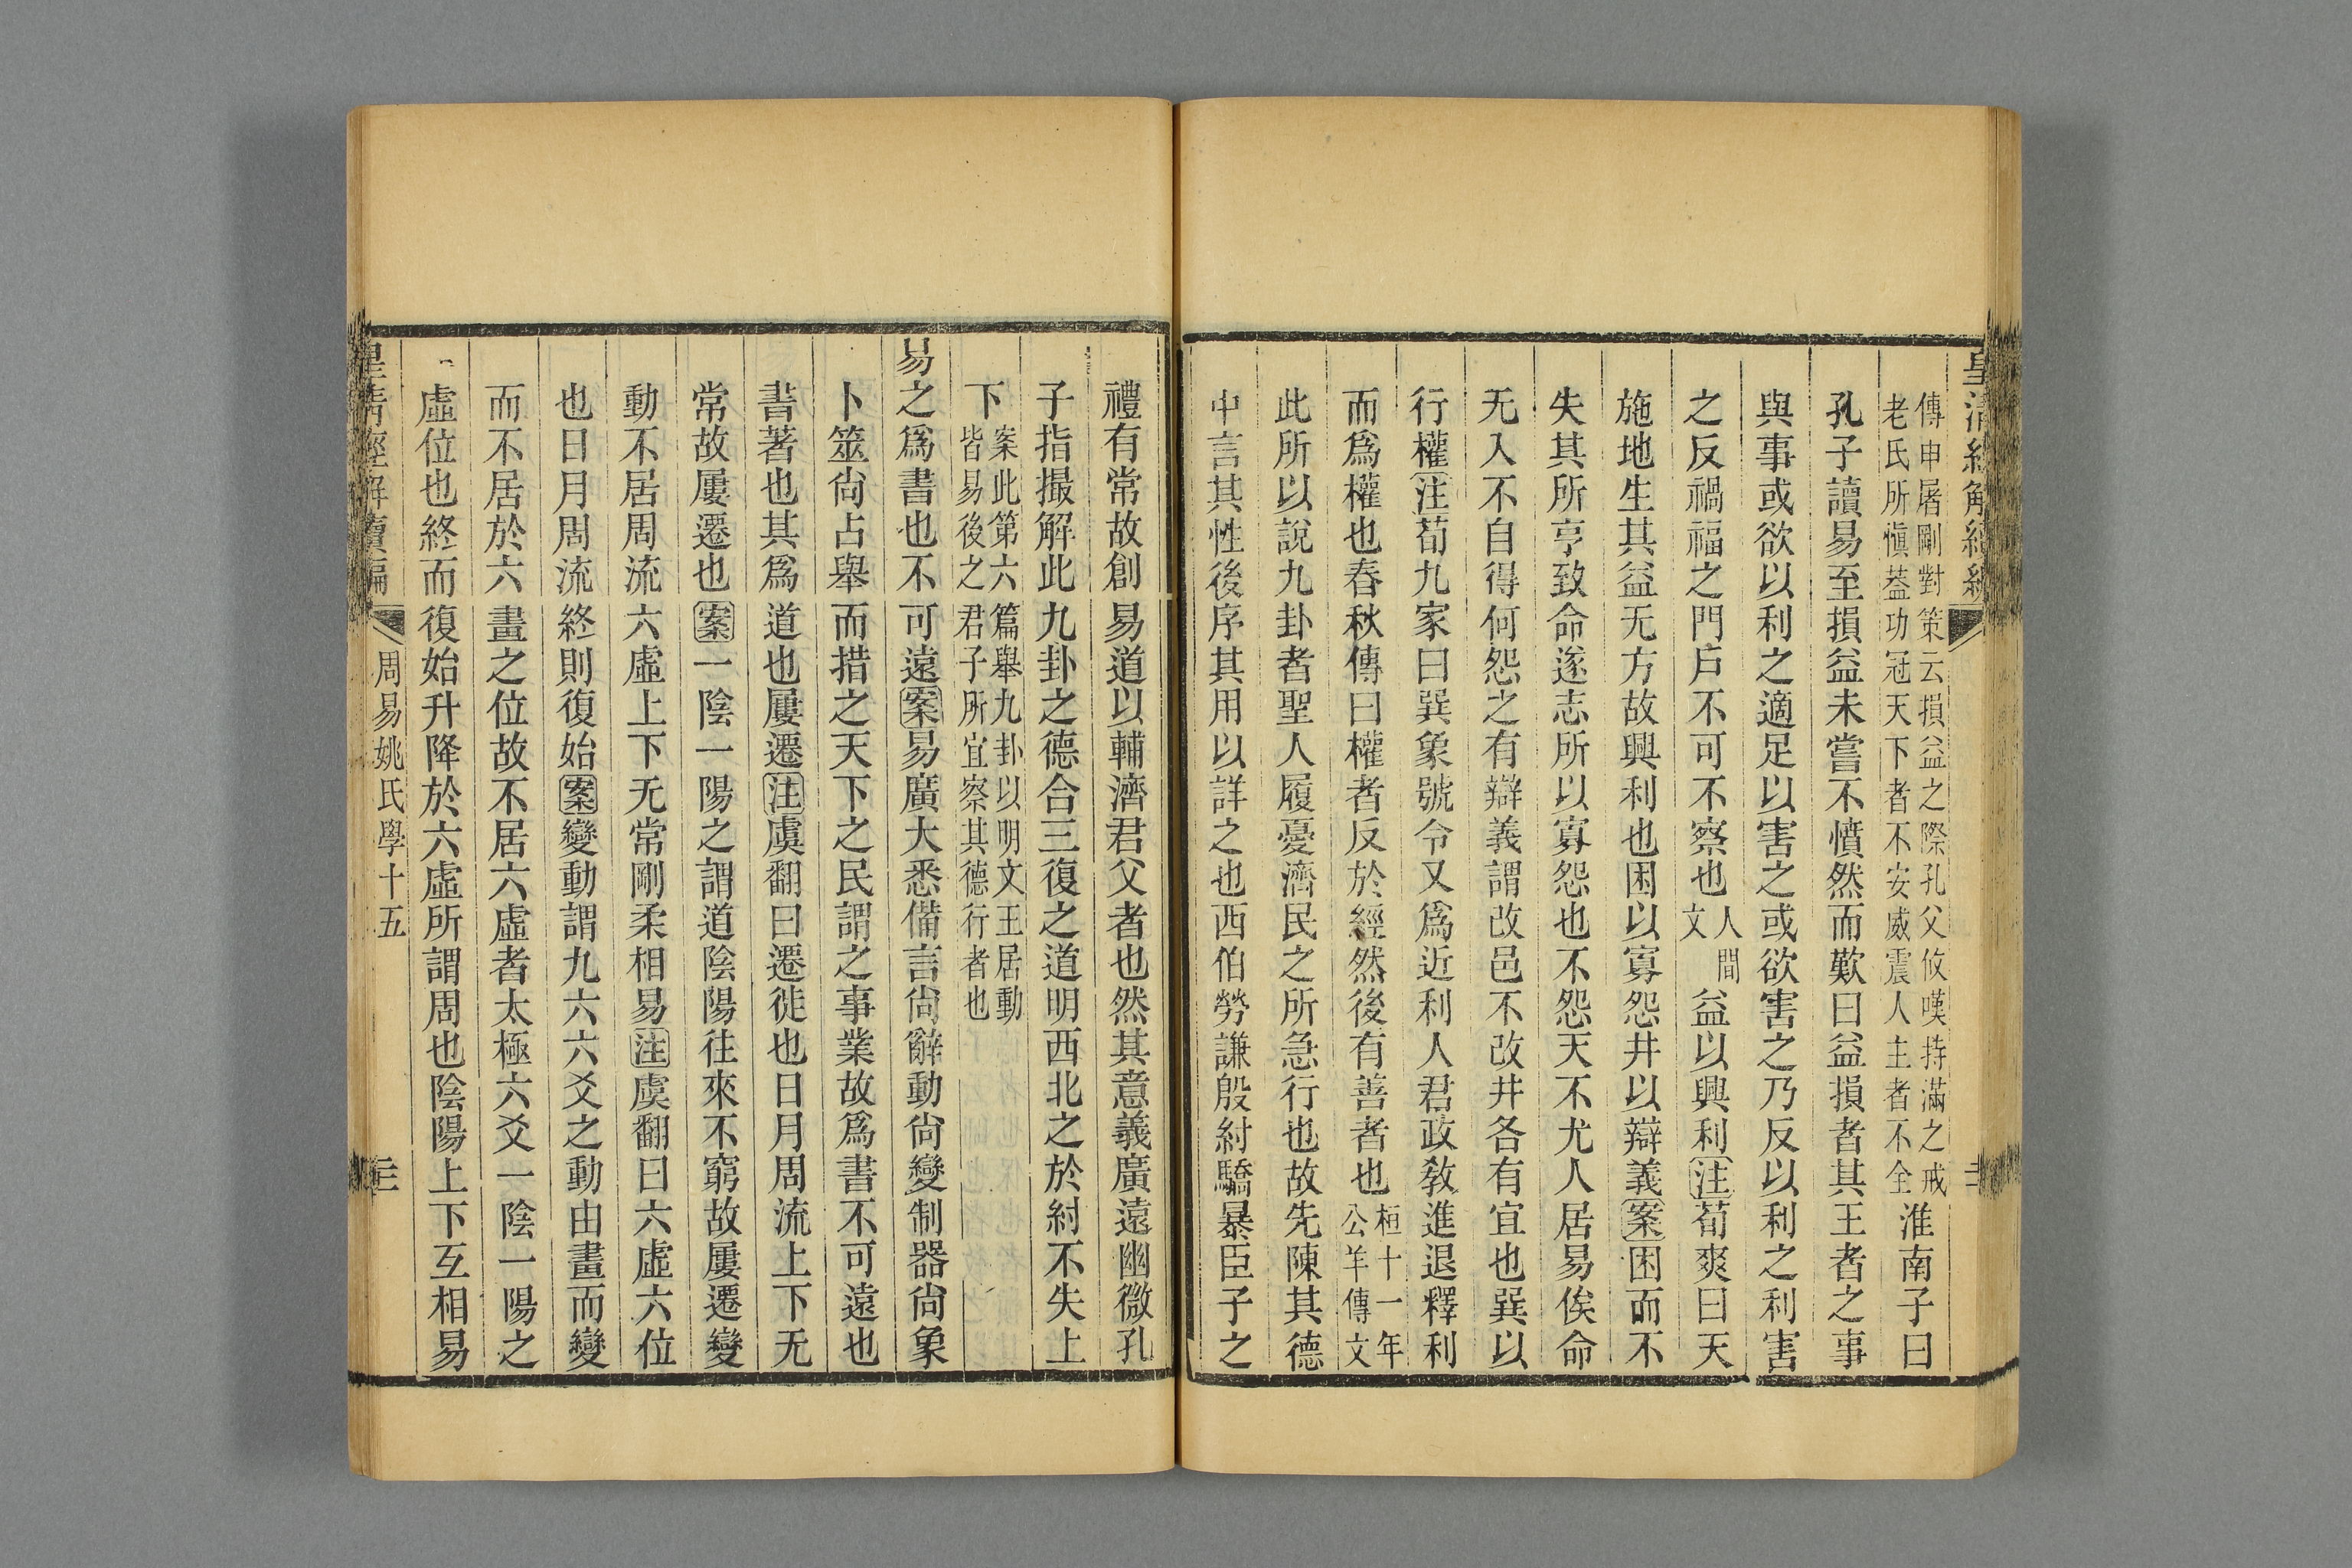 皇清經解續編
傳申屠剛對策云損益之際孔父攸嘆持滿之戒
老氏所愼葢功冠天下者不安威震人主者不全
淮南子曰
孔子讀易至損益未嘗不憤然而歎曰益損者其王者之事
與事或欲以利之適足以害之或欲害之乃反以利之利害
之反禍福之門戶不可不察也
人間
文
益以興利注荀爽曰天
施地生其益无方故興利也困以寡怨井以辯義案困而不
失其所亨致命遂志所以寡怨也不怨天不尤人居易俟命
无入不自得何怨之有辯義謂改邑不改井各有宜也巽以
行權注荀九家曰巽象號令又爲近利人君政教進退釋利
而爲權也春秋傳曰權者反於經然後有善者也
桓十一年
公羊傳文
此所以說九卦者聖人履憂濟民之所急行也故先陳其德
中言其性後序其用以詳之也西伯勞謙殷紂驕暴臣子之
禮有常故創易道以輔濟君父者也然其意義廣遠幽微孔
子指撮解此九卦之德合三復之道明西北之於紂不失上
下
案此第六篇舉九卦以明文王居動
皆易後之君子所宜察其德行者也
易之爲書也不可遠案易廣大悉備言尙辭動尙變制器尙象
卜筮尙占舉而措之天下之民謂之事業故爲書不可遠也
書著也其爲道也屢遷注虞翻曰遷徙也日月周流上下无
常故屢遷也案一陰一陽之謂道陰陽往來不窮故屢遷變
動不居周流六虛上下无常剛柔相易注虞翻曰六虛六位
也日月周流終則復始案變動謂九六六爻之動由畫而變
而不居於六畫之位故不居六虛者太極六爻一陰一陽之
虛位也終而復始升降於六虛所謂周也陰陽上下互相易
皇清經解續編
周易姚氏學十五